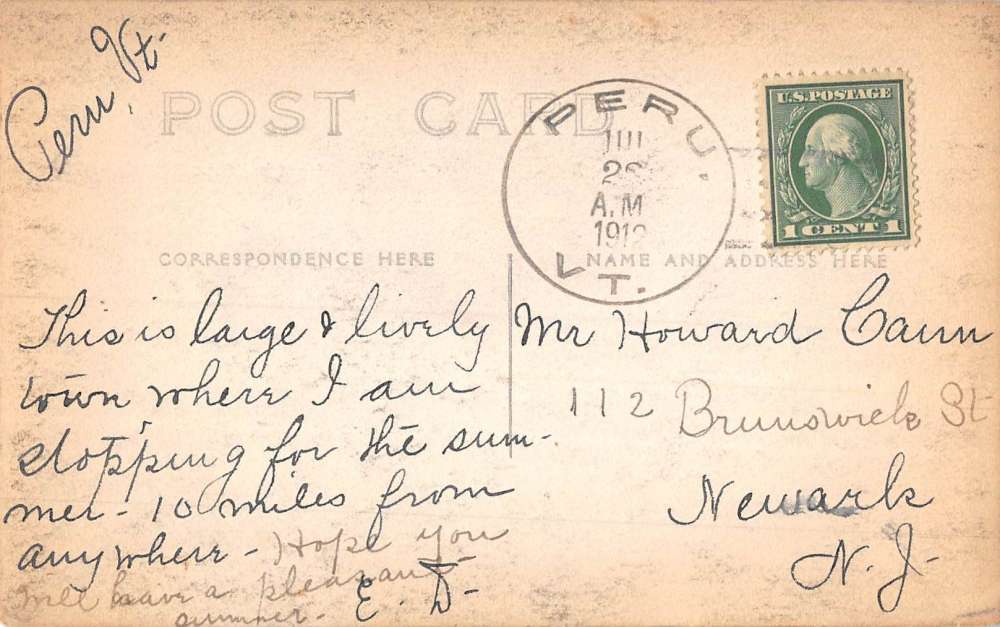 Peru, Vt.
POST CARD
PERU.
JUL
A.M
191
VT.
U.S. POSTAGE
1 CENT 1
CORRESPONDENCE HERE
NAME AND ADDRESS HERE
This is large & lively
town where I am
stopping for the sum-
mer - 10 miles from
anywhere - Hope you
will have a pleasant
summer -
E. D-
Mr Howard Cann
112 Brunswick St
Newark
N. J-